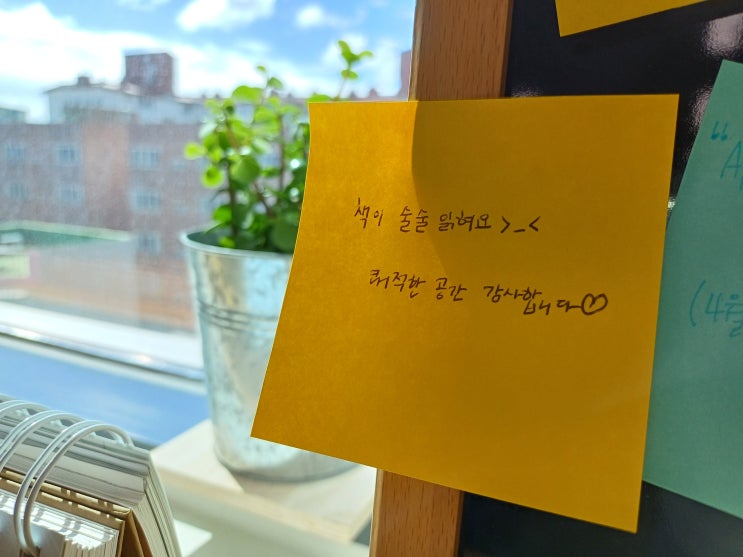 책이 술술 읽혀요 >_<
쾌적한 공간 감사합니다♡
"A
(4월